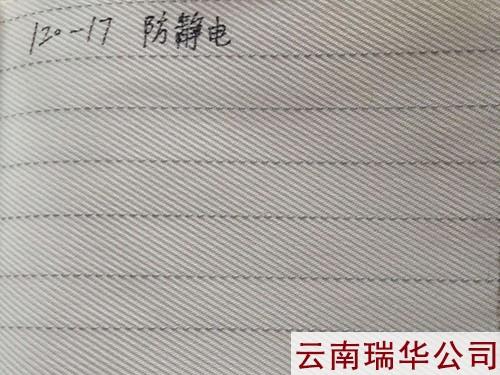 120-17 防静电
云南瑞华公司